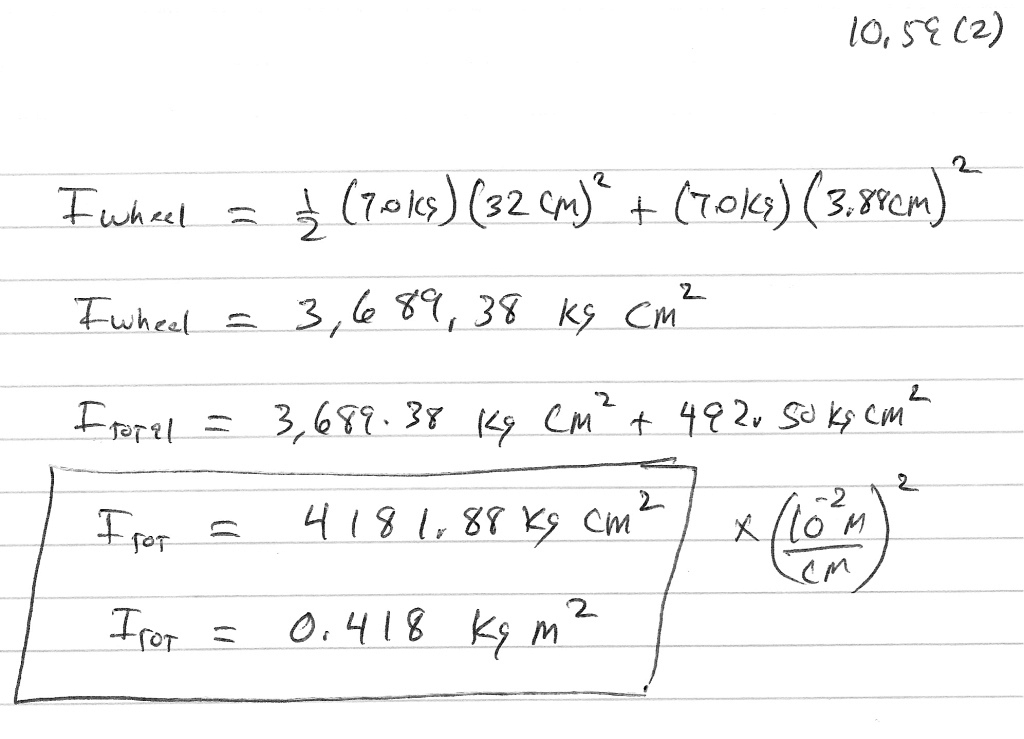 10.59 (2)
I wheel = 1/2 (7.0 kg) (32 cm)² + (7.0 kg) (3.88 cm)²
I wheel = 3,689.38 kg cm²
I Total = 3,689.38 kg cm² + 492.50 kg cm²
I TOT = 4181.88 kg cm² × (10⁻² m / cm)²
I TOT = 0.418 kg m²